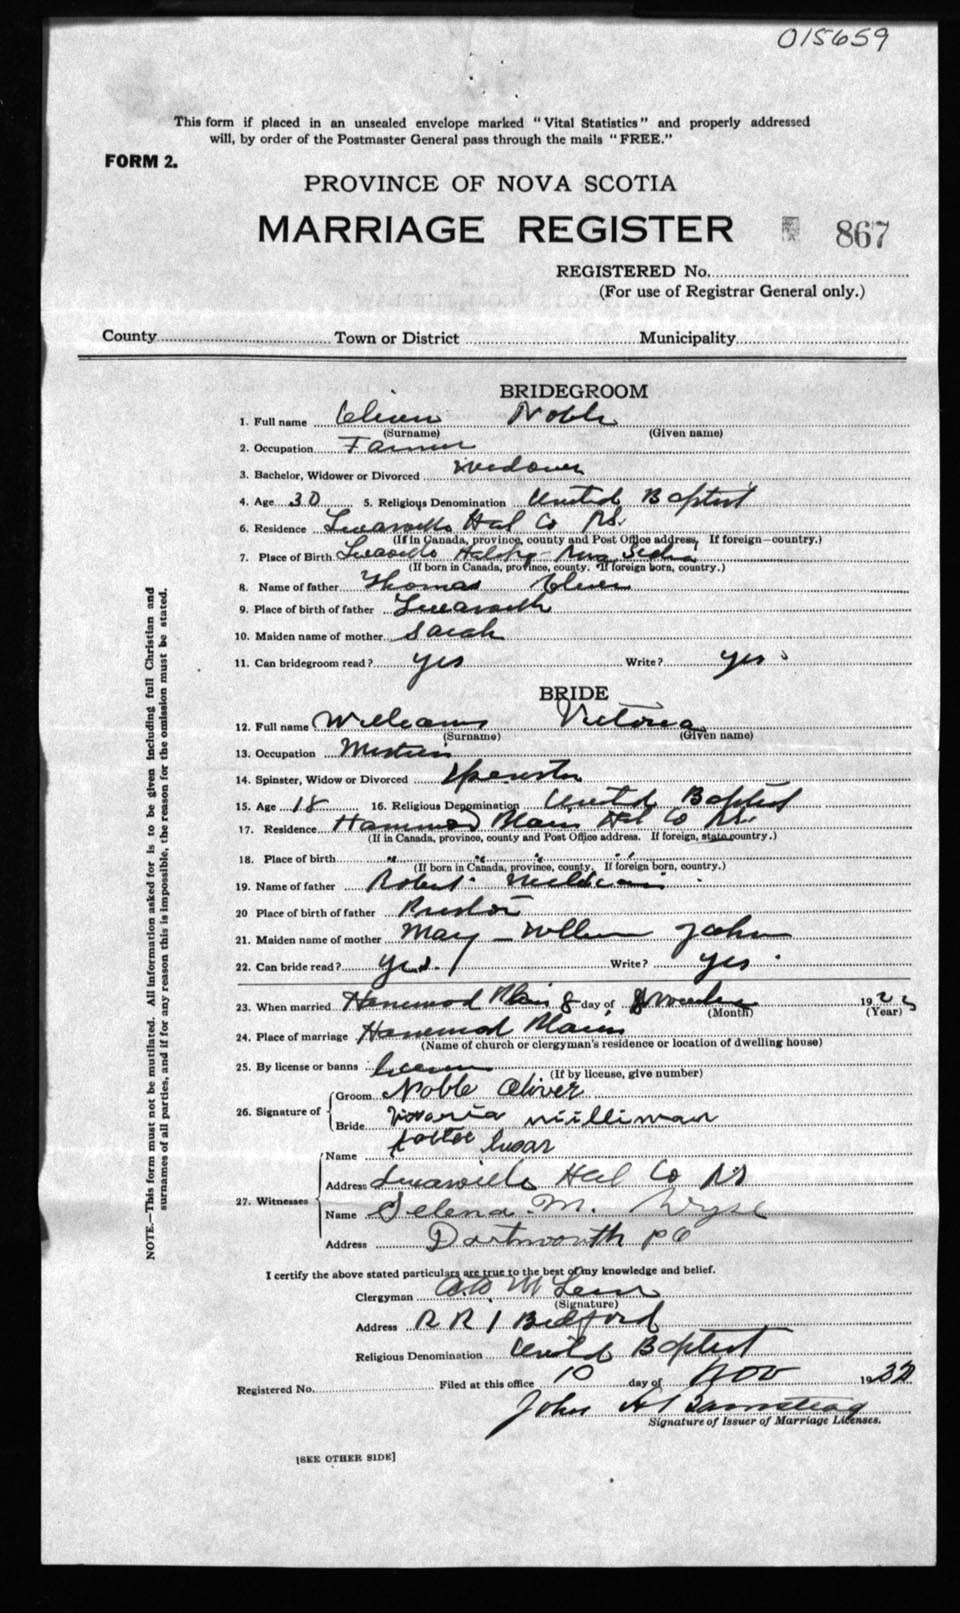 015659
This form if placed in an unsealed envelope marked "Vital Statistics" and properly addressed
will, by order of the Postmaster General pass through the mails "FREE."
FORM 2.
PROVINCE OF NOVA SCOTIA
MARRIAGE REGISTER 867
REGISTERED No.
(For use of Registrar General only.)
County Town or District Municipality
BRIDEGROOM
1. Full name Oliver Noble
(Surname) (Given name)
2. Occupation Farmer
3. Bachelor, Widower or Divorced Widower
4. Age 30 5. Religious Denomination United Baptist
6. Residence Lucasville Hal Co NS.
(If in Canada, province, county and Post Office address, If foreign—country.)
7. Place of Birth Lucasville Nova Scotia
(If born in Canada, province, county. If foreign born, country.)
8. Name of father Thomas Oliver
9. Place of birth of father
10. Maiden name of mother Sarah
11. Can bridegroom read? yes Write? yes
BRIDE
12. Full name Williams Victoria
(Surname) (Given name)
13. Occupation
14. Spinster, Widow or Divorced Spinster
15. Age 18 16. Religious Denomination United Baptist
17. Residence Hammond Plains Hal Co NS.
(If in Canada, province, county and Post Office address. If foreign, state country.)
18. Place of birth " " " "
(If born in Canada, province, county, If foreign born, country.)
19. Name of father Robert Williams
20 Place of birth of father Preston
21. Maiden name of mother Mary
22. Can bride read? yes. Write? yes
23. When married Hammond Plains 8 day of November 19
(Month) (Year)
24. Place of marriage Hammond Plains
(Name of church or clergyman's residence or location of dwelling house)
25. By license or banns license
(If by license, give number)
26. Signature of Groom Noble Oliver
Bride
27. Witnesses Name
Address Lucasville Hal Co NS
Name Selena M. Wyse
Address Dartmouth PO
I certify the above stated particulars are true to the best of my knowledge and belief.
Clergyman
(Signature)
Address R R 1 Bedford
Religious Denomination United Baptist
Registered No. Filed at this office 10 day of Nov 19
John
Signature of Issuer of Marriage Licenses.
[SEE OTHER SIDE]
NOTE.—This form must not be mutilated. All information asked for is to be given including full Christian and
surnames of all parties, and if for any reason this is impossible, the reason for the omission must be stated.